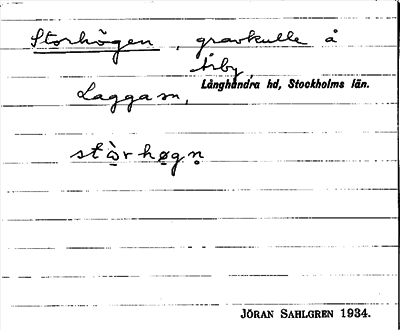 Storhögen, gravkulle å
Årby
Långhundra hd, Stockholms län.
Lagga sn,
stòrhøgn̥
JÖRAN SAHLGREN 1934.